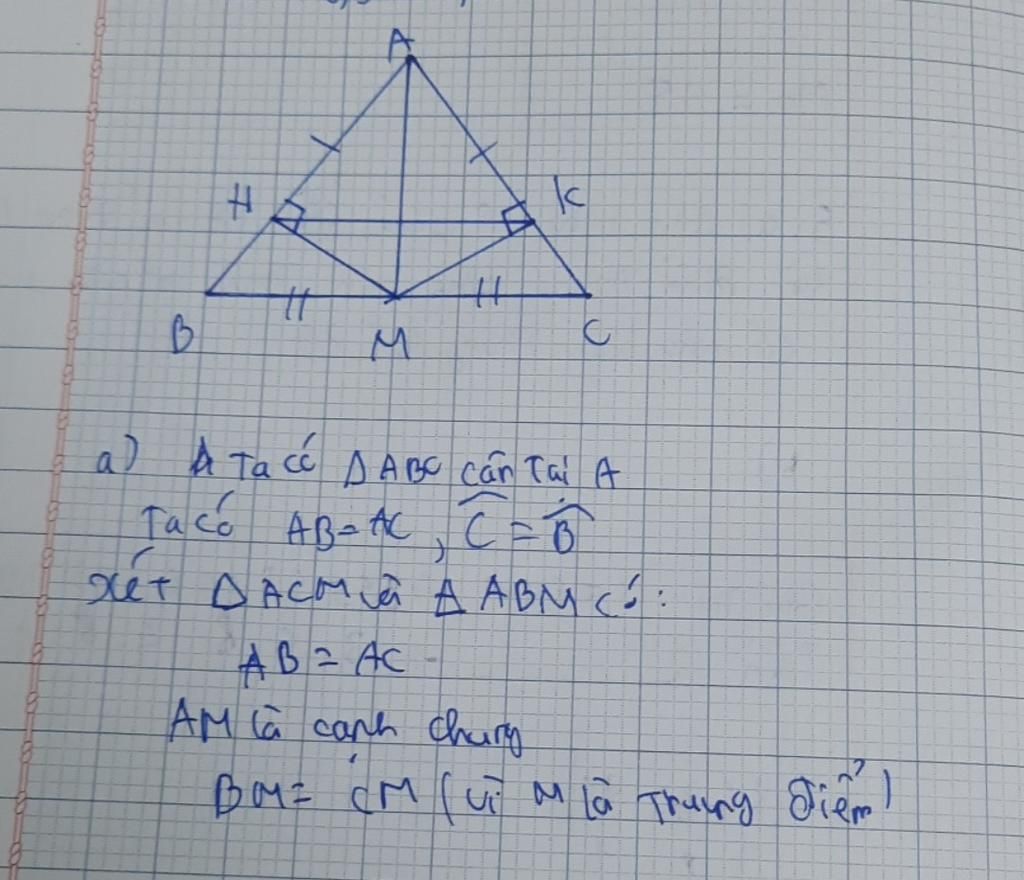 A
H
K
B
M
C
a) Ta có Δ ABC cân tại A
Ta có AB = AC, Ĉ = B̂
Xét Δ ACM và Δ ABM có:
AB = AC
AM là cạnh chung
BM = CM (vì M là trung điểm)